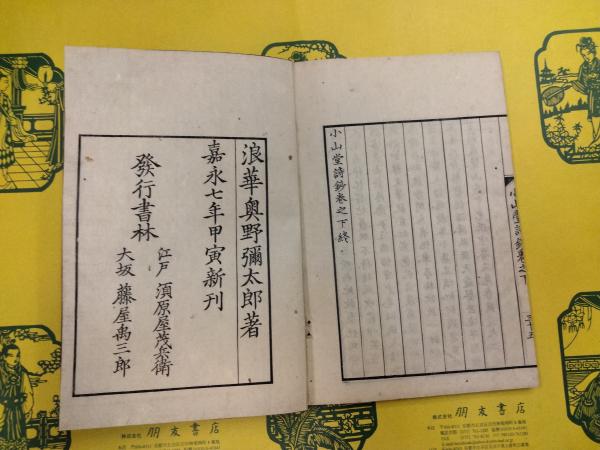 小山堂詩鈔卷之下
三十五
小山堂詩鈔卷之下終
浪華奥野彌太郎著
嘉永七年甲寅新刊
發行書林
江戸 須原屋茂兵衛
大坂 藤屋禹三郎
株式会社 朋友書店
株式会社 朋友書店